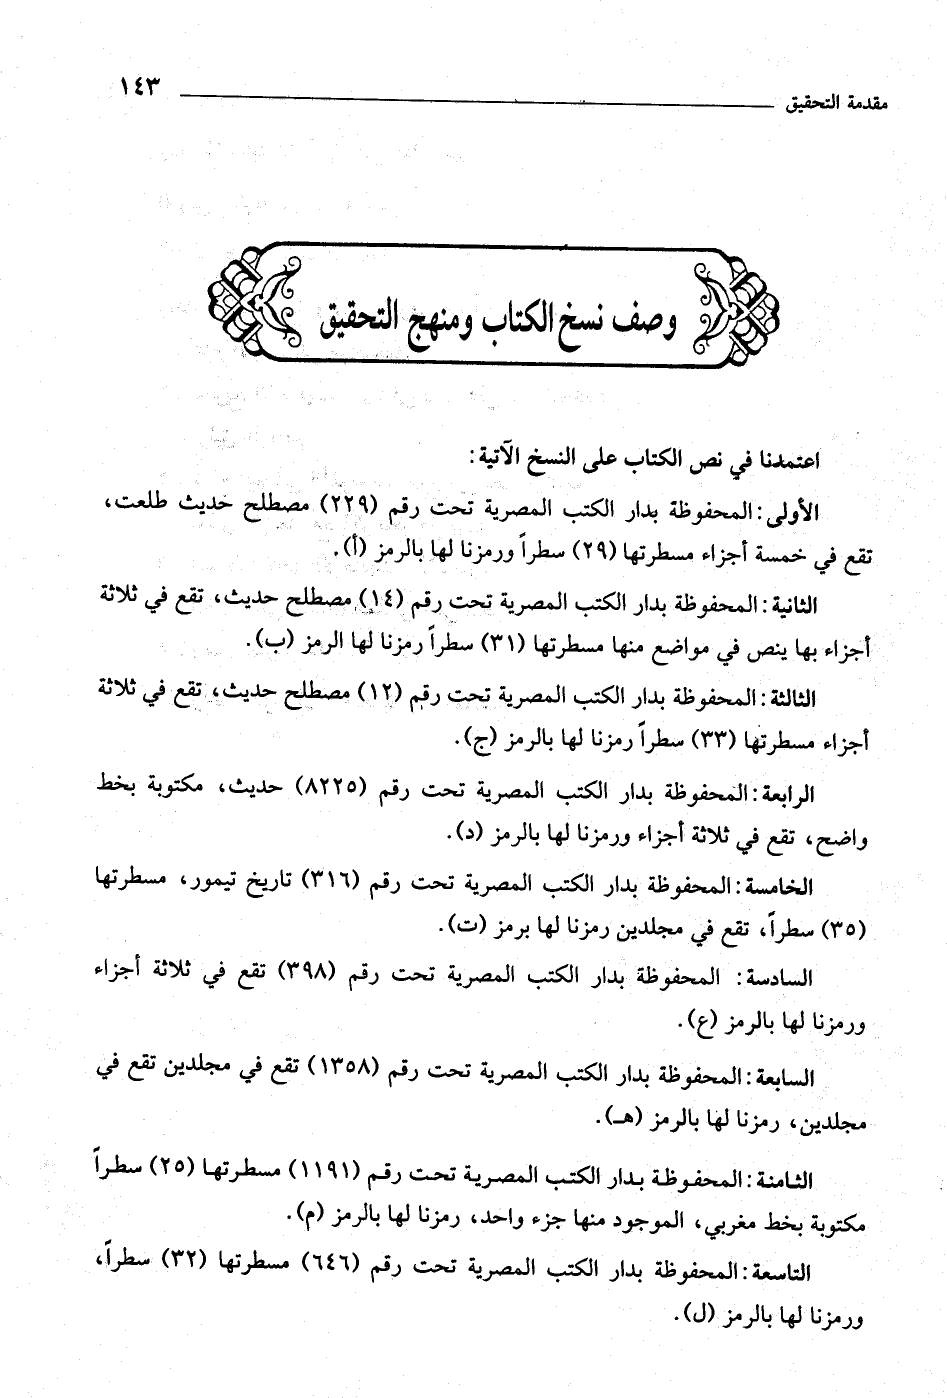 مقدمة التحقيق ١٤٣
وصف نسخ الكتاب ومنهج التحقيق
اعتمدنا في نص الكتاب على النسخ الآتية:
الأولى: المحفوظة بدار الكتب المصرية تحت رقم (٢٢٩) مصطلح حديث طلعت،
تقع في خمسة أجزاء مسطرتها (٢٩) سطراً ورمزنا لها بالرمز (أ).
الثانية: المحفوظة بدار الكتب المصرية تحت رقم (١٤) مصطلح حديث، تقع في ثلاثة
أجزاء بها ينص في مواضع منها مسطرتها (٣١) سطراً رمزنا لها الرمز (ب).
الثالثة: المحفوظة بدار الكتب المصرية تحت رقم (١٢) مصطلح حديث، تقع في ثلاثة
أجزاء مسطرتها (٣٣) سطراً رمزنا لها بالرمز (ج).
الرابعة: المحفوظة بدار الكتب المصرية تحت رقم (٨٢٢٥) حديث، مكتوبة بخط
واضح، تقع في ثلاثة أجزاء ورمزنا لها بالرمز (د).
الخامسة: المحفوظة بدار الكتب المصرية تحت رقم (٣١٦) تاريخ تيمور، مسطرتها
(٣٥) سطراً، تقع في مجلدين رمزنا لها برمز (ت).
السادسة: المحفوظة بدار الكتب المصرية تحت رقم (٣٩٨) تقع في ثلاثة أجزاء
ورمزنا لها بالرمز (ع).
السابعة: المحفوظة بدار الكتب المصرية تحت رقم (١٣٥٨) تقع في مجلدين تقع في
مجلدين، رمزنا لها بالرمز (هـ).
الثامنة: المحفوظة بدار الكتب المصرية تحت رقم (١١٩١) مسطرتها (٢٥) سطراً
مكتوبة بخط مغربي، الموجود منها جزء واحد، رمزنا لها بالرمز (م).
التاسعة: المحفوظة بدار الكتب المصرية تحت رقم (٦٤٦) مسطرتها (٣٢) سطراً،
ورمزنا لها بالرمز (ل).